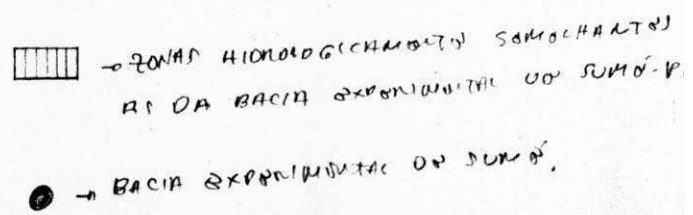 → ZONAS HIDROLOGICAMENTE SEMELHANTES
AS DA BACIA EXPERIMENTAL DE SUMÉ-P
→ BACIA EXPERIMENTAL DE SUMÉ.